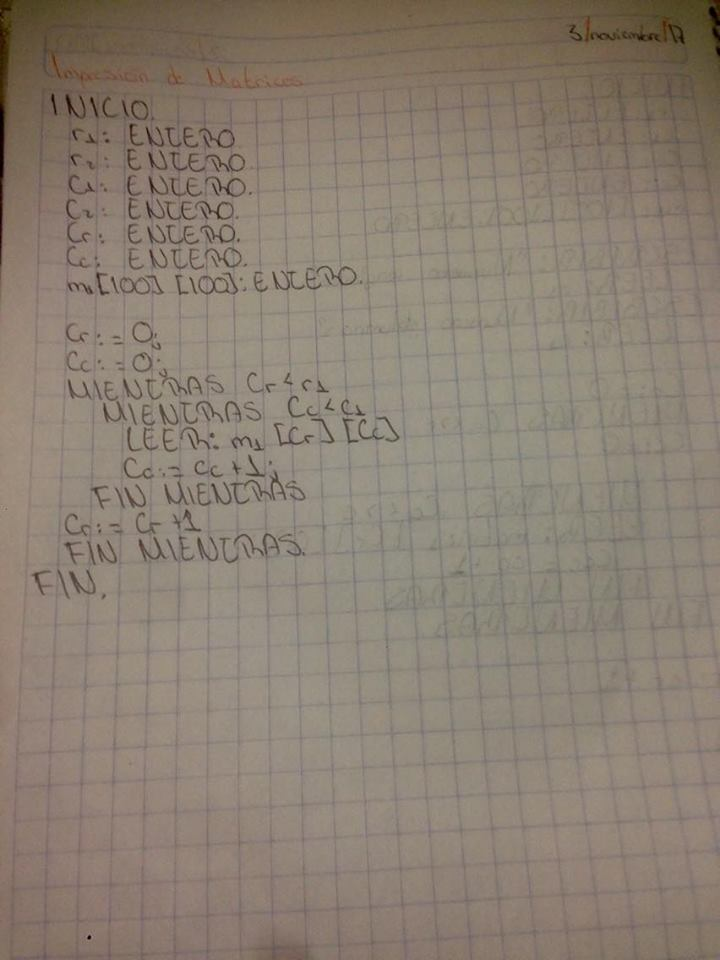 3/noviembre/17
Impresión de Matrices
INICIO.
r1: ENTERO.
r2: ENTERO.
C1: ENTERO.
C2: ENTERO.
Cr: ENTERO.
Cc: ENTERO.
m1[100] [100]: ENTERO.
Cr:= 0;
Cc:= 0;
MIENTRAS Cr < r1
MIENTRAS Cc < C1
LEER: m1 [Cr] [Cc]
Cc:= Cc +1;
FIN MIENTRAS
Cr:= Cr +1
FIN MIENTRAS.
FIN.